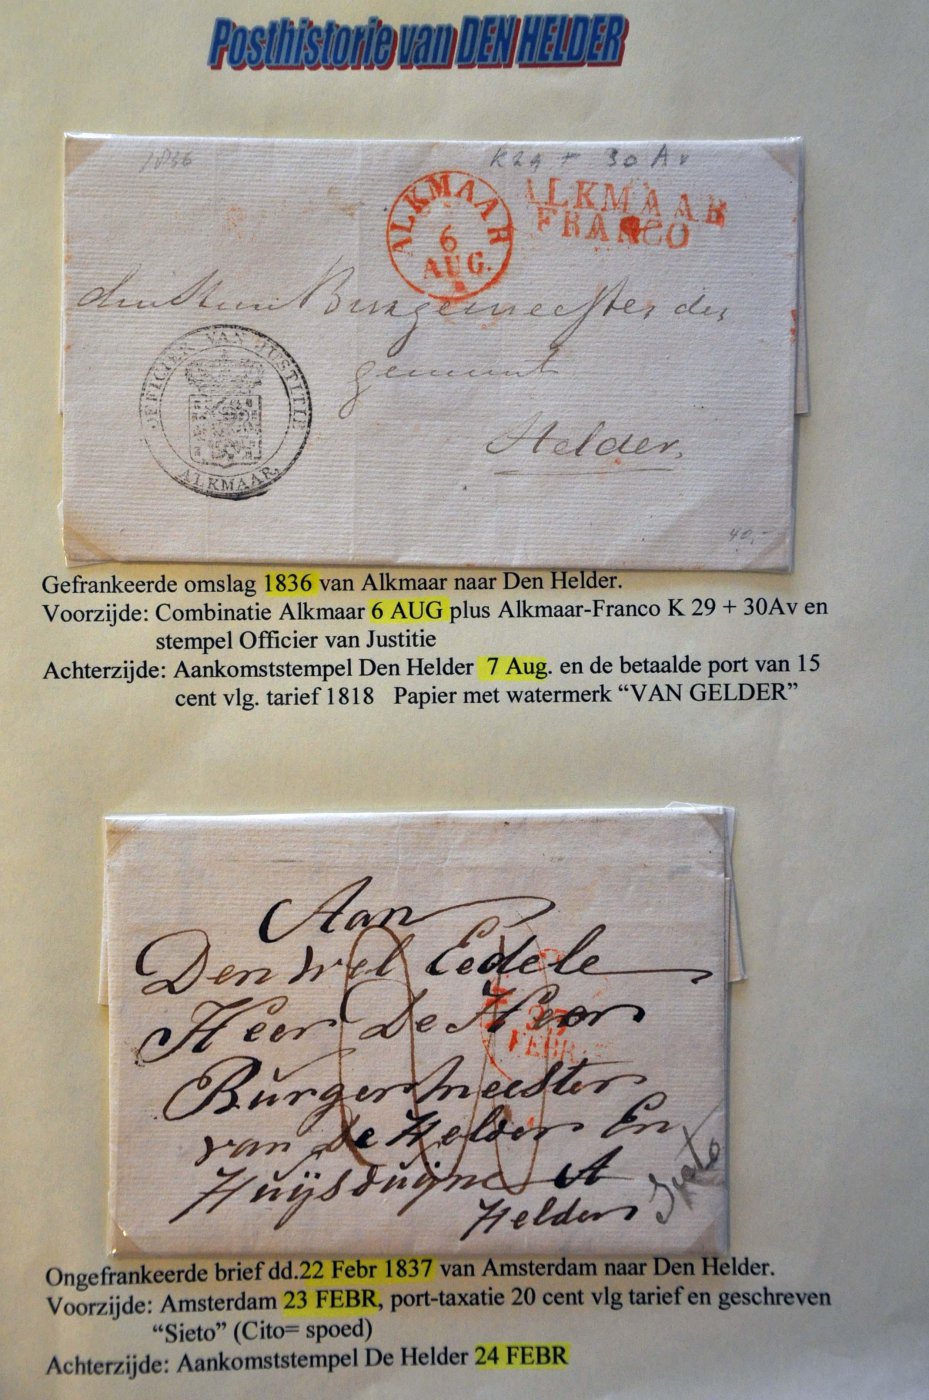 Posthistorie van DEN HELDER
1836
K29 + 30 Av
ALKMAAR
6
AUG.
ALKMAAR
FRANCO
Burgemeester der
gemeente
Helder.
OFFICIER VAN JUSTITIE
ALKMAAR.
40,-
Gefrankeerde omslag 1836 van Alkmaar naar Den Helder.
Voorzijde: Combinatie Alkmaar 6 AUG plus Alkmaar-Franco K 29 + 30Av en
stempel Officier van Justitie
Achterzijde: Aankomststempel Den Helder 7 Aug. en de betaalde port van 15
cent vlg. tarief 1818 Papier met watermerk “VAN GELDER”
Aan
Den Wel Eedele
Heer De Heer
23
FEBR
Burgermeester
van De Helder En
Huijsduijne A
Helder
Sieto
Ongefrankeerde brief dd.22 Febr 1837 van Amsterdam naar Den Helder.
Voorzijde: Amsterdam 23 FEBR, port-taxatie 20 cent vlg tarief en geschreven
“Sieto” (Cito= spoed)
Achterzijde: Aankomststempel De Helder 24 FEBR